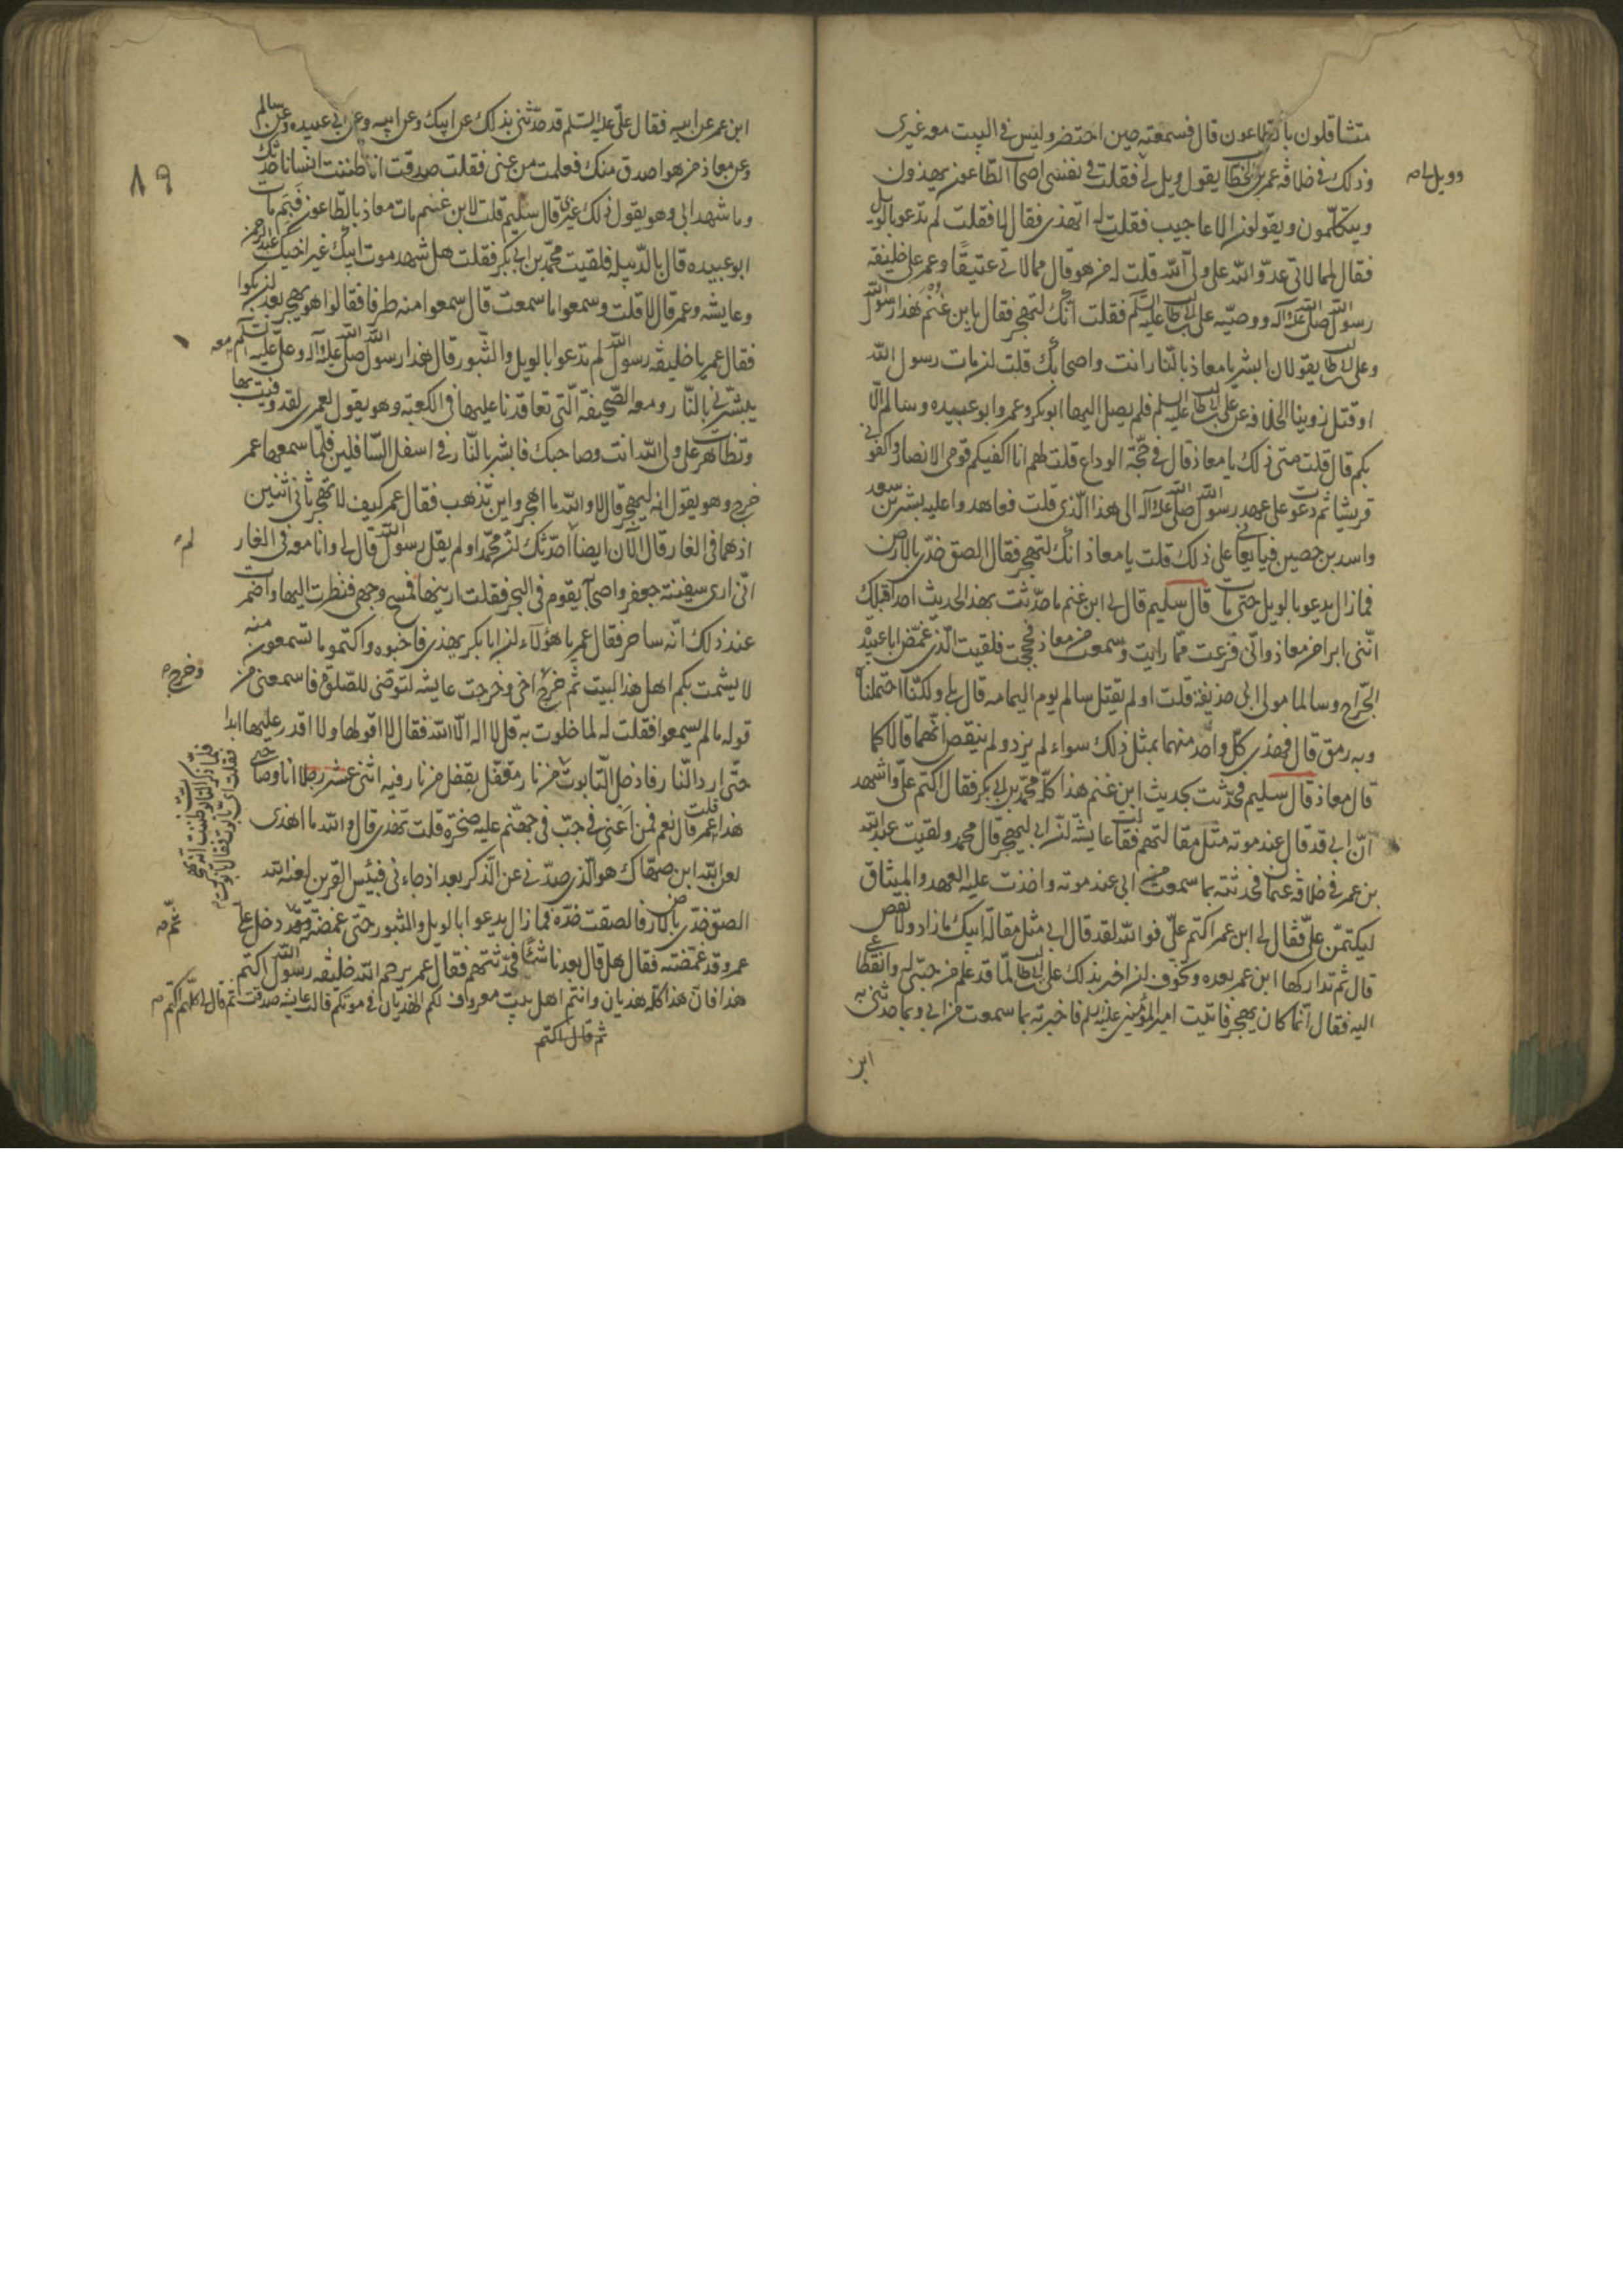 متشاقلون بالطاعون قال فسمعته حين احتضر وليس في البيت معه غيري
وذلك في خلافة عمر بن الخطاب يقول ويل لي فقلت في نفسي اصحاب الطاعون يهذون
وويل لي صح
ويتكلمون ويقولون الاعاجيب فقلت له اتهذي فقال لا فقلت لم تدعو بالويل
فقال لممالاتي عدو الله على ولي الله قلت له من هو قال ممالاتي عتيقا وعمر على خليفة
رسول الله صلى الله عليه وآله ووصيه علي بن ابي طالب عليه السلم فقلت انك لتهجر فقال يا بن غنم هذا رسول الله
وعلي بن ابي طالب يقولان ابشر يا معاذ بالنار انت واصحابك قلت لن مات رسول الله
او قتل زوينا الخلافة عن علي بن ابي طالب عليه السلم فلم يصل اليها ابو بكر وعمر وابو عبيده وسالم قال
بكم قال قلت متى ذلك يا معاذ قال في حجة الوداع قلت لهم انا اكفيكم قومي الانصار واكفوني
قريشا ثم دعوت على عهد رسول الله صلى الله عليه وآله الى هذا الذي قلت فعاهدوا عليه بشر بن سعد
واسد بن حصين فبايعاني على ذلك قلت يا معاذ انك لتهجر فقال الصق خدي بالارض
فما زال يدعو بالويل حتى مات قال سليم قال لي ابن غنم ما حدثت بهذا الحديث احدا قبلك
اثنى ابراخر معاذ واني فزعت مما رايت وسمعت من معاذ فحججت فلقيت الذي غمض ابا عبيدة
الجراح وسالما مولى ابي حذيفة قلت اولم يقتل سالم يوم اليمامه قال بلى ولكنا احتملناه
وبه رمق قال فحدثني كل واحد منهما بمثل ذلك سواء لم يزد ولم ينقص انهما قالا كما
قال معاذ قال سليم فحدثت بحديث ابن غنم هذا كله محمد بن ابي بكر فقال اكتم علي واشهد
ان ابي قد قال عند موته مثل مقالتهم فقالت عايشة ان ابي ليهجر قال محمد ولقيت عبد الله
بن عمر في خلافة عثمان فحدثته بما سمعت من ابي عند موته واخذت عليه العهد والميثاق
ليكتمن علي فقال لي ابن عمر اكتم علي فوالله لقد قال ابي مثل مقالة ابيك ما زاد ولا نقص
قال ثم تداركها ابن عمر بعده وتخوف لن اخبر بذلك علي بن ابي طالب لما قد علم من حبي له وانقطاعي
اليه فقال انما كان يهجر فاتيت امير المؤمنين عليه السلم فاخبرته بما سمعت من ابي وبما حدثني به
ابن
٨٩
ابن عمر عن ابيه فقال علي عليه السلم قد حدثني بذلك عن ابيك وعن ابيه وعن ابي عبيده وعن سالم
وعن معاذ من هو اصدق منك فعلمت من عنى فقلت صدقت انا ظننت انسانا حدثك
وما شهد ابي وهو يقول ذلك غيري قال سليم قلت لابن غنم مات معاذ بالطاعون فبم مات
ابو عبيده قال بالدبيلة فلقيت محمد بن ابي بكر فقلت هل شهد موت ابيك غير اخيك عبد الرحمن
وعايشه وعمر قال لا قلت وسمعوا ما سمعت قال سمعوا منه طرفا فقالوا هو يهجر بعد لن بكوا
فقال عمر يا خليفة رسول الله لم تدعوا بالويل والثبور قال هذا رسول الله صلى الله عليه وآله وعلي عليه السلم معه
يبشرني بالنار ومعه الصحيفة التي تعاقدنا عليها في الكعبة وهو يقول لعمري لقد وفيت بها
وتظاهرت على ولي الله انت وصاحبك فابشر بالنار في اسفل السافلين فلما سمعها عمر
خرج وهو يقول انه ليهجر قال لا والله ما اهجر واين تذهب فقال عمر كيف لا تهجر ثاني اثنين
اذ هما في الغار قال الآن ايضا احدثك لن محمدا ولم يقل رسول الله قال لي وانا معه في الغار
لم
اني ارى سفينة جعفر واصحابه يقوم في البحر فقلت ارنيها فمسح وجهي فنظرت اليها واضمرت
عند ذلك انه ساحر فقال عمر يا هؤلاء لن ابا بكر يهذي فاخبوه واكتموا ما تسمعون منه
لا يشمت بكم اهل هذا البيت ثم خرج اخي وخرجت عايشه لتوضى للصلوة فاسمعني من
وخرج صح
قوله ما لم يسمعوا فقلت له لما خلوت به قل لا اله الا الله فقال لا اقولها ولا اقدر عليها ابدا
حتى ارد النار فادخل التابوت من نار مقفل بقفل من نار فيه اثنى عشر رجلا انا وصاحبي
هذا قلت عمر قال نعم فمن اعني في جب في جهنم عليه صخرة قلت تهذي قال والله ما اهذي
لعن الله ابن صهاك هو الذي صدني عن الذكر بعد اذ جاءني فبئس القرين لعنه الله
الصق خدي بالارض فالصقت خده فما زال يدعوا بالويل والثبور حتى غمضته وقد دخل علي
ثم صح
عمر وقد غمضته فقال هل قال بعدنا شيئا فحدثتهم فقال عمر يرحم الله خليفة رسول الله اكتم
هذا فان هذا كله هذيان وانتم اهل بيت معروف لكم الهذيان في موتكم قالت عايشه صدقت ثم قال لي اكتم صح
ثم قال اكتم